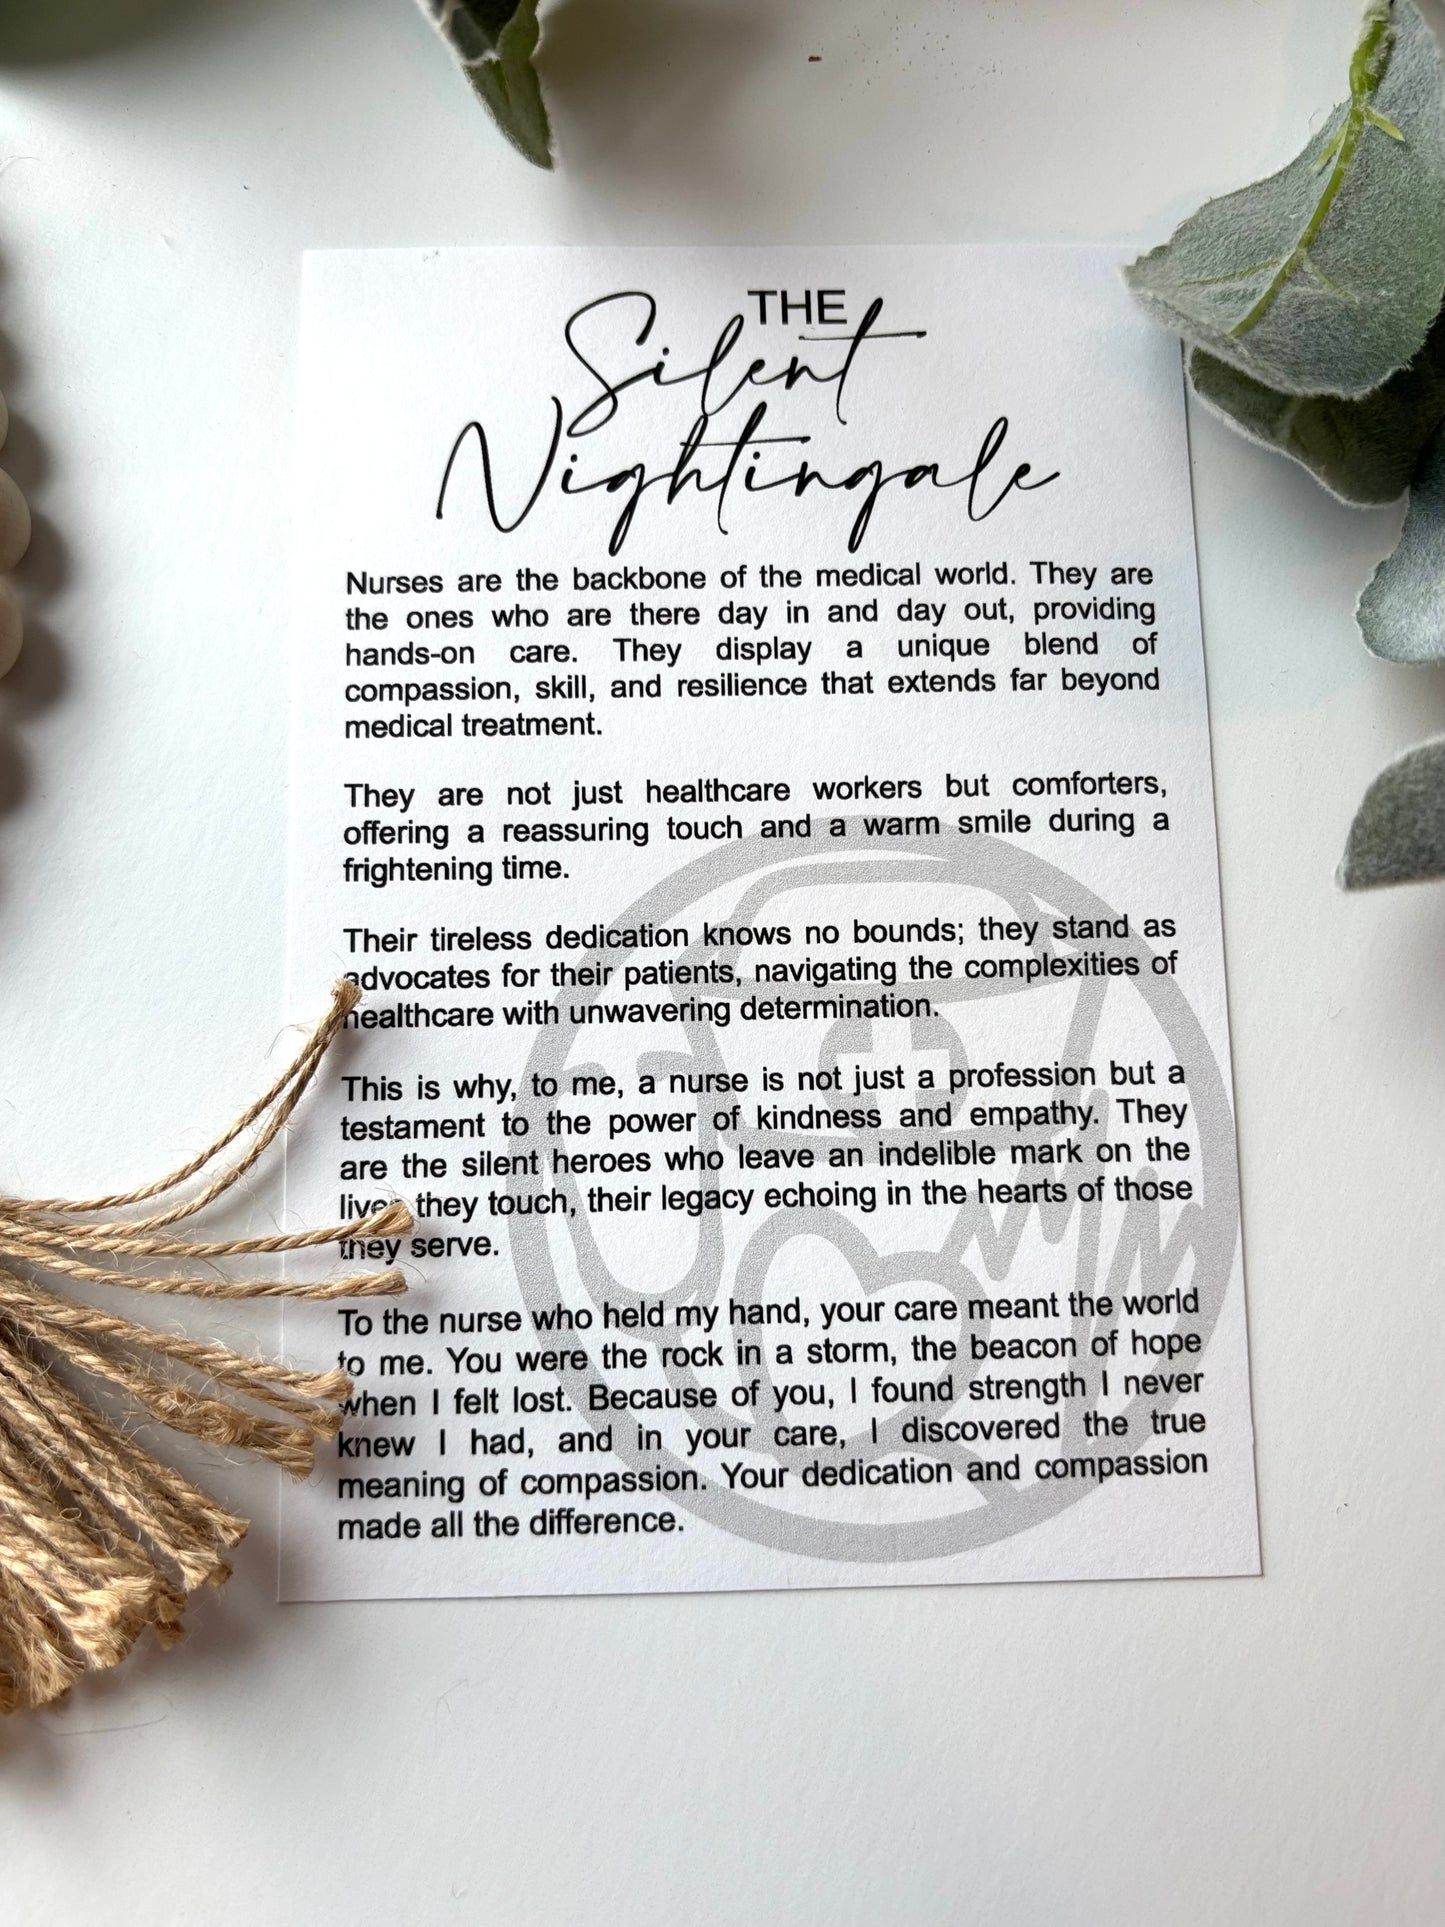 THE
Silent
Nightingale
Nurses are the backbone of the medical world. They are
the ones who are there day in and day out, providing
hands-on care. They display a unique blend of
compassion, skill, and resilience that extends far beyond
medical treatment.
They are not just healthcare workers but comforters,
offering a reassuring touch and a warm smile during a
frightening time.
Their tireless dedication knows no bounds; they stand as
advocates for their patients, navigating the complexities of
healthcare with unwavering determination.
This is why, to me, a nurse is not just a profession but a
testament to the power of kindness and empathy. They
are the silent heroes who leave an indelible mark on the
lives they touch, their legacy echoing in the hearts of those
they serve.
To the nurse who held my hand, your care meant the world
to me. You were the rock in a storm, the beacon of hope
when I felt lost. Because of you, I found strength I never
knew I had, and in your care, I discovered the true
meaning of compassion. Your dedication and compassion
made all the difference.